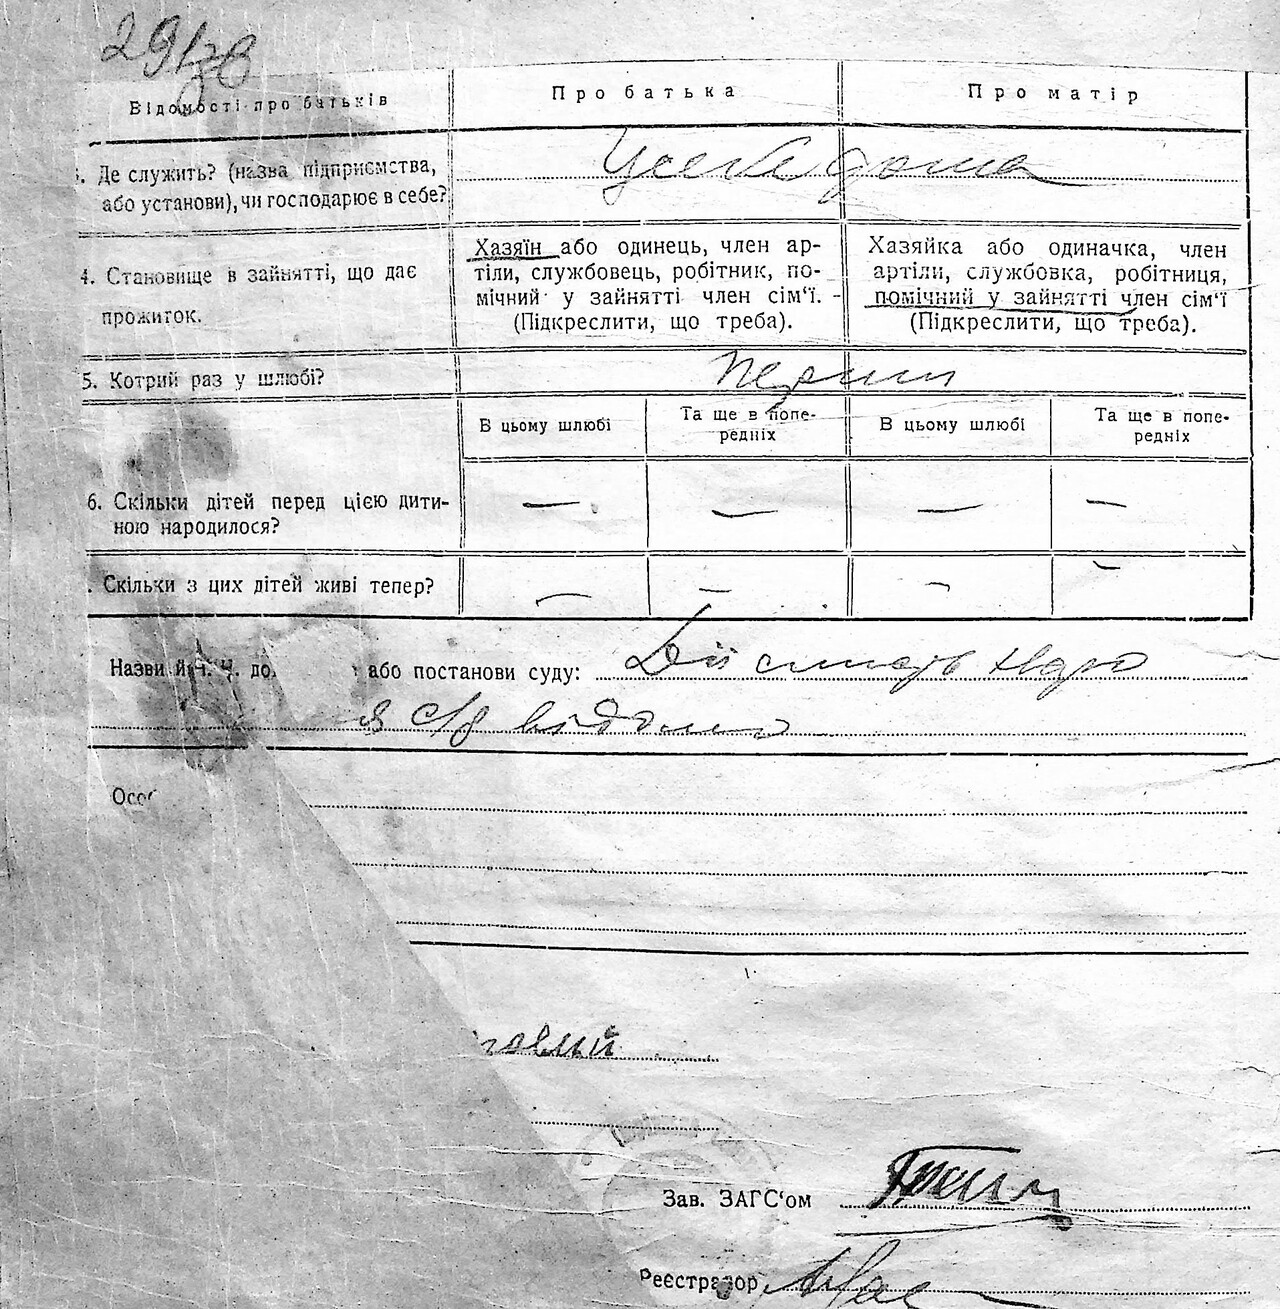 291зв
Відомості про батьків
Про батька
Про матір
Де служить? (назва підприємства,
або установи), чи господарює в себе?
У себе дома
4. Становище в зайнятті, що дає
прожиток.
Хазяїн або одинець, член ар-
тіли, службовець, робітник, по-
мічний у зайнятті член сім'ї.
(Підкреслити, що треба).
Хазяйка або одиначка, член
артіли, службовка, робітниця,
помічний у зайнятті член сім'ї
(Підкреслити, що треба).
5. Котрий раз у шлюбі?
В цьому шлюбі
Та ще в попе-
редніх
В цьому шлюбі
Та ще в попе-
редніх
6. Скільки дітей перед цією дити-
ною народилося?
— — — —
. Скільки з цих дітей живі тепер?
— — — —
Назви й ч. ч. до або постанови суду:
Особ
Зав. ЗАГС'ом
Реєстратор